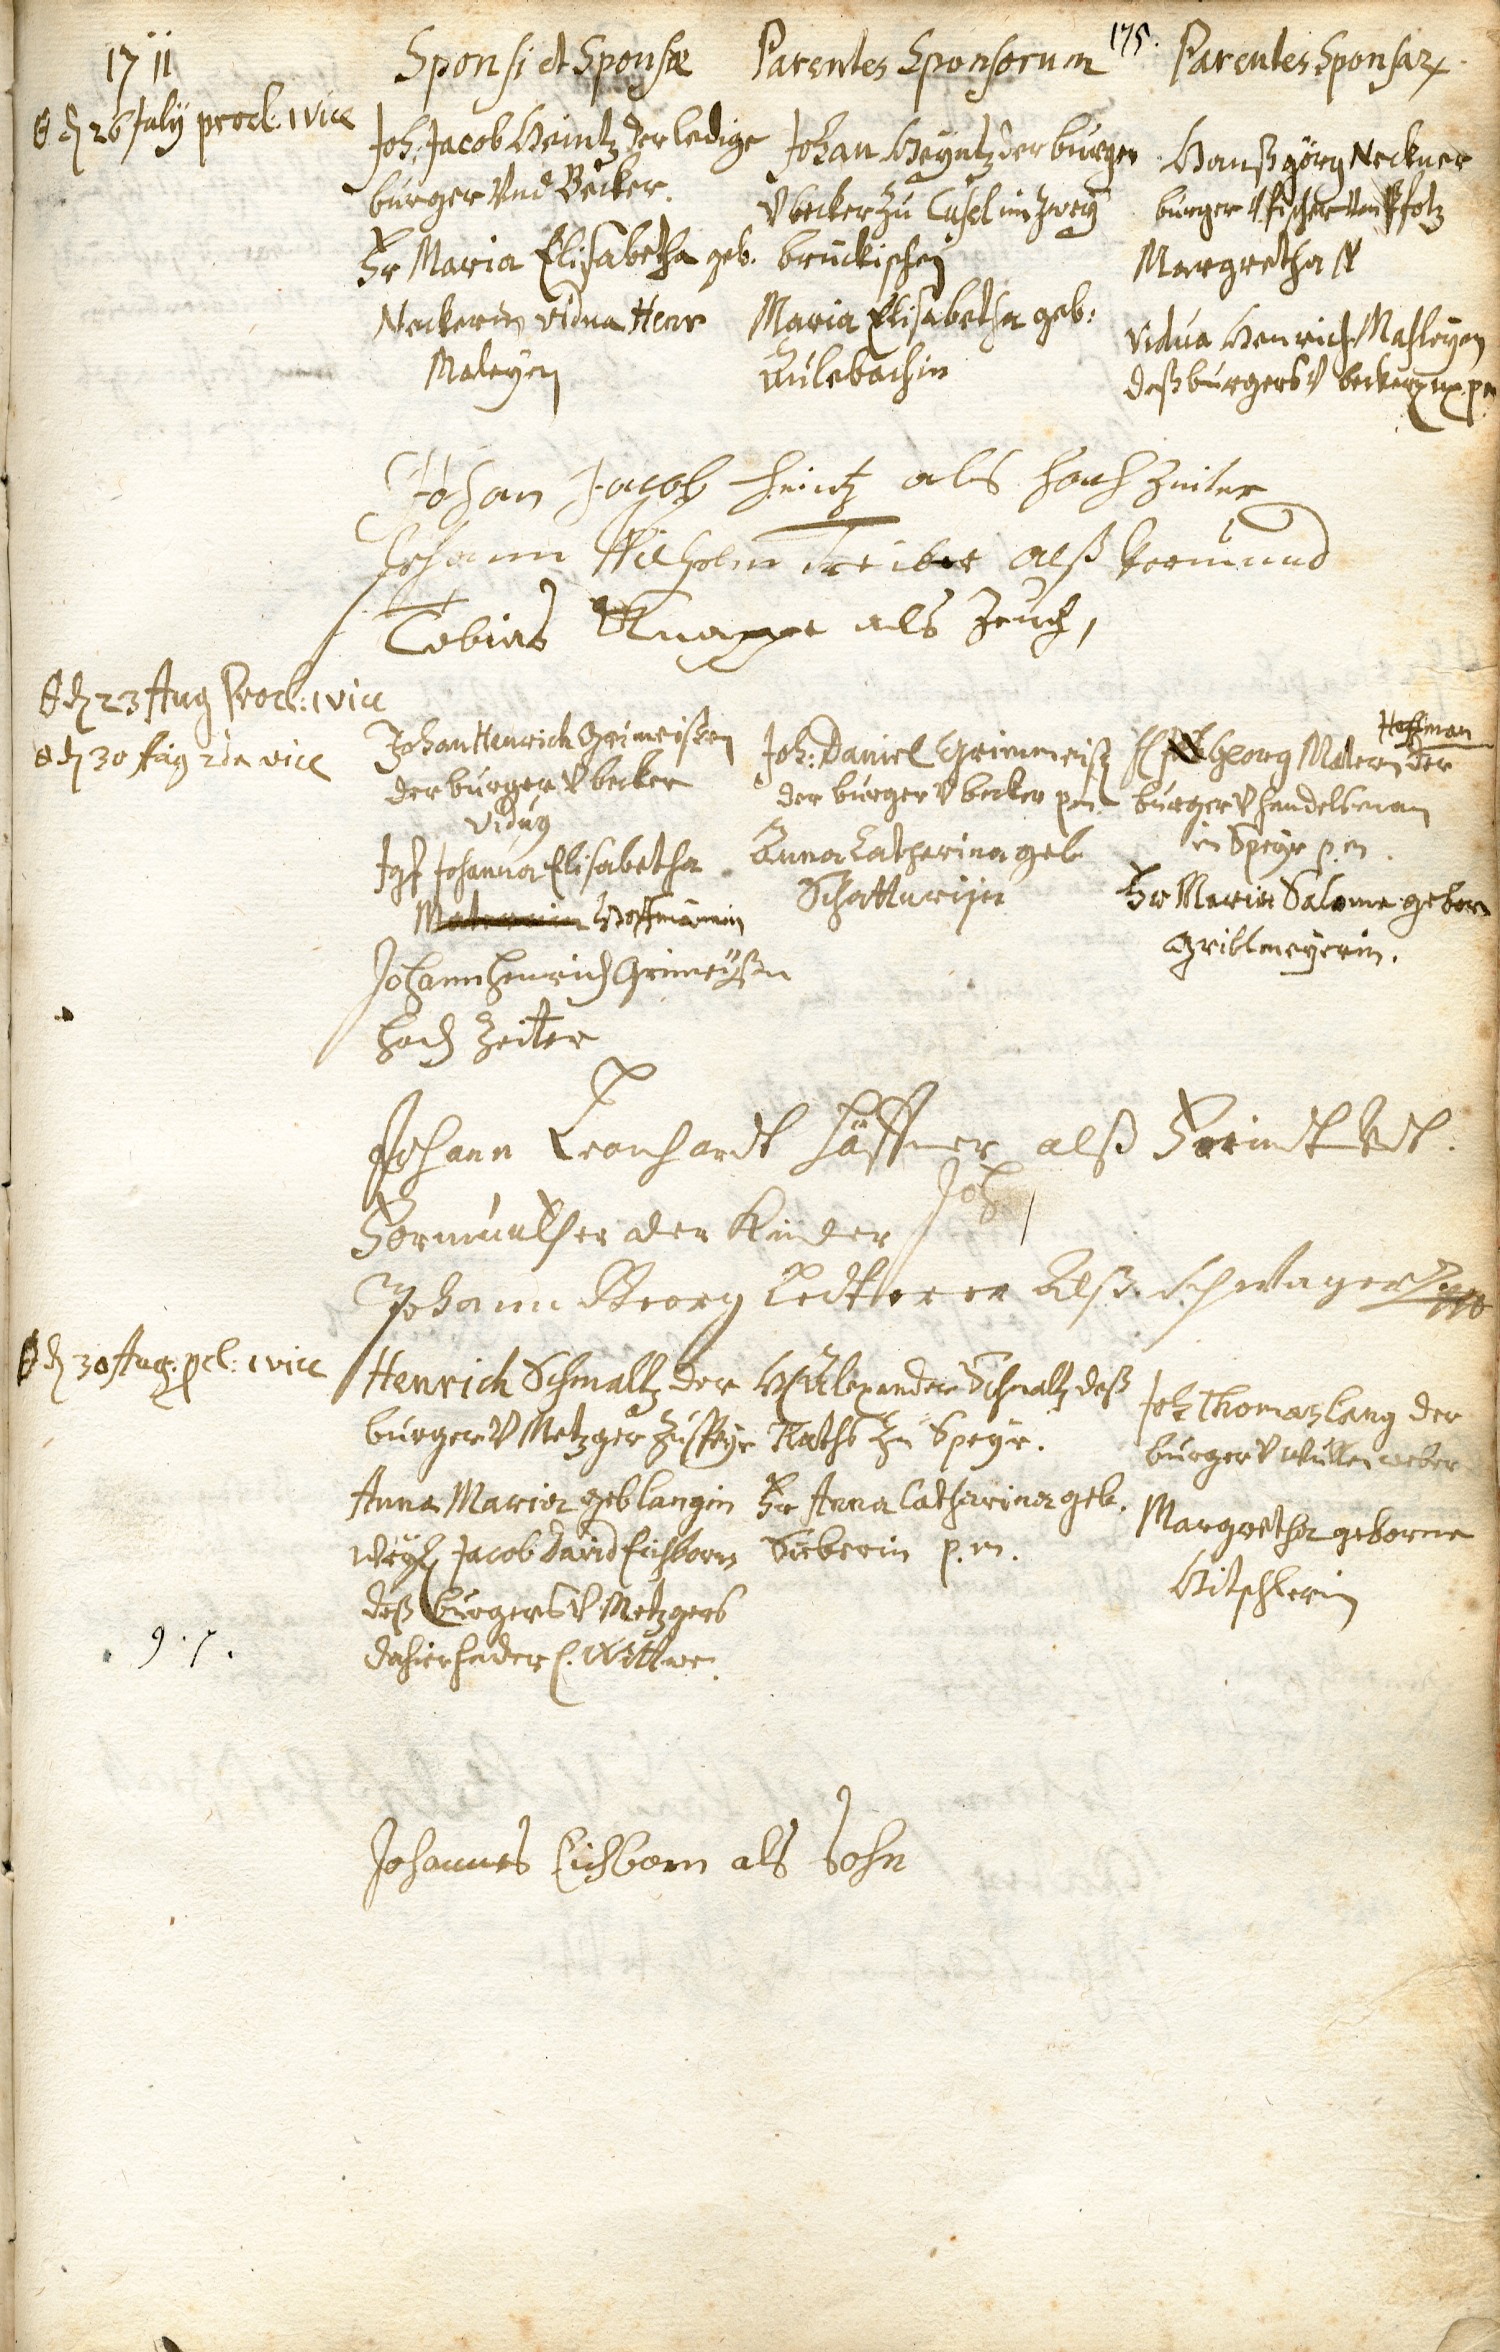 175.
1711
Sponsi et Sponsæ
Parentes Sponsorum
Parentes Sponsar.
d. 26 July procl. 1 vice
Joh: Jacob Heintz der ledige
burger und Becker.
Fr Maria Elisabetha geb.
Neckerin vidua Henr
Maleyen
Johan Heyntz der burger
v becker zu Cusel im Zwey
brückischen
Maria Elisabetha geb:
Hanß görg Neckner
burger v fischer von Pfotz
Margretha N
vidua Henrich Mahleyen
deß burgers v beckers
Johan Jacob Heintz als hochzeiter
Johann Wilhelm Treiber alß Vormund
Tobias Knappe als Zeuch,
d. 23 Aug Procl: 1 vice
d. 30 Aug 2da vice
Johan Henrich Grimeisen
der burger v becker
viduus
Jgf Johanna Elisabetha
Materin Hoffmännin
Joh: Daniel Grimmeiß
der burger v becker p.m.
Anna Catharina geb
Hoffman
Georg Matern der
burger v handelsman
in Speyr p.m.
Fr Maria Salome geborn
Griblmeyerin.
Johann Henrich Grimeyßen
hoch Zeiter
Johann Leonhardt Häffner alß Freindt Vdt.
Vormünther der Kinder Joh
Johann Georg Ledterer Alß Schwager
d. 30 Aug: pcl: 1 vice
Henrich Schmaltz der
burger v Metzger zu Speyr
Anna Maria geb langin
weyl. Jacob David Eichborn
deß burgers v Metzgers
dahier hinderl. Wittwe.
H Alexander Schmaltz deß
Raths zu Speyr.
Fr Anna Catharina geb.
Sieberin p.m.
Joh Thomas Lang der
burger v wullenweber
Margretha geborne
Hitschlerin
9.7.
Johannes Eichborn als Sohn